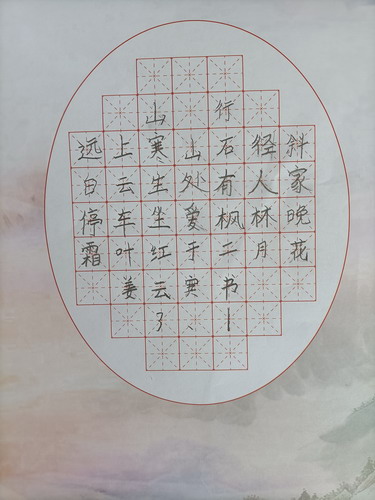 山行
远上寒山石径斜
白云生处有人家
停车坐爱枫林晚
霜叶红于二月花
姜云书
3、1